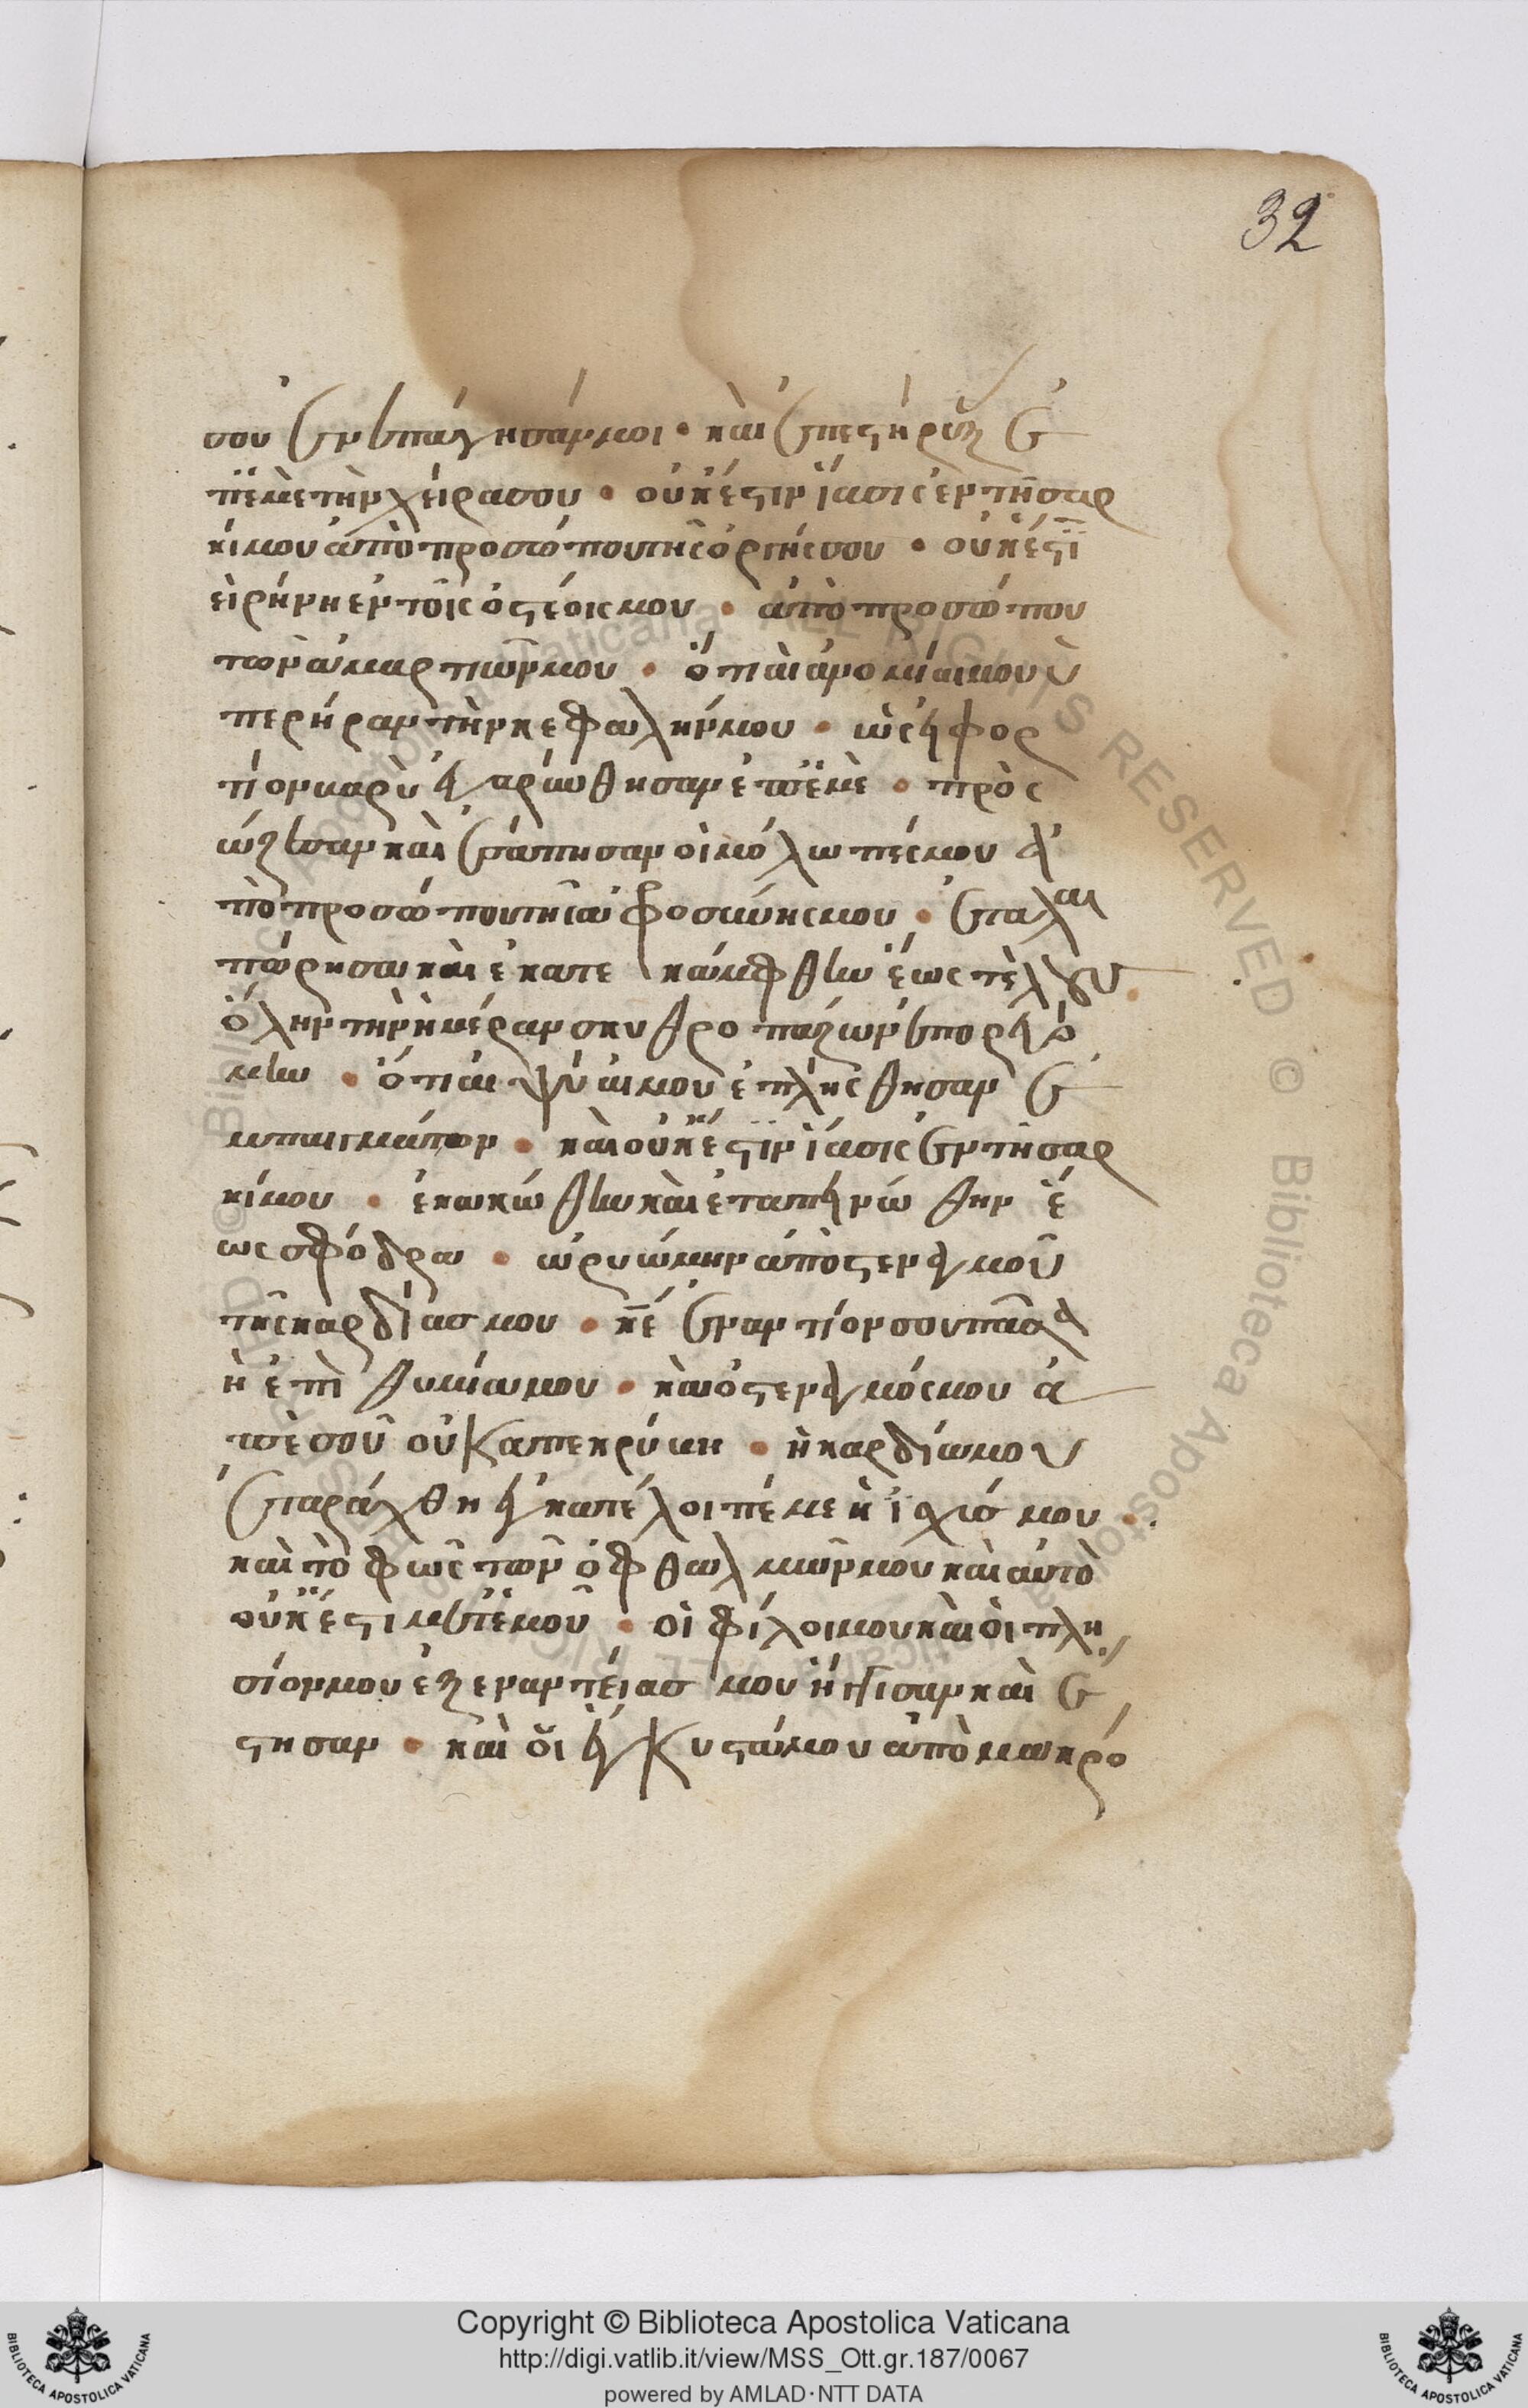 32
σου ἐνεπάγησάν μοι · καὶ ἐπεστήριξας ἐ
π' ἐμὲ τὴν χεῖρα σου · οὐκ ἔστιν ἴασις ἐν τῇ σαρ
κί μου ἀπὸ προσώπου τῆς ὀργῆς σου · οὐκ ἔστι
εἰρήνη ἐν τοῖς ὀστέοις μου · ἀπὸ προσώπου
τῶν ἁμαρτιῶν μου · ὅτι αἱ ἀνομίαι μου ὑ
περῆραν τὴν κεφαλήν μου · ὡσεὶ φορ
τίον βαρὺ ἐβαρύνθησαν ἐπ' ἐμὲ · προσ
ώζεσαν καὶ ἐσάπησαν οἱ μώλωπές μου ἀ
πὸ προσώπου τῆς ἀφροσύνης μου · ἐταλαι
πώρησα καὶ κατεκάμφθην ἕως τέλους ·
ὅλην τὴν ἡμέραν σκυθρωπάζων ἐπορευό
μην · ὅτι αἱ ψύαι μου ἐπλήσθησαν ἐ
μπαιγμάτων · καὶ οὐκ ἔστιν ἴασις ἐν τῇ σαρ
κί μου · ἐκακώθην καὶ ἐταπεινώθην ἕ
ως σφόδρα · ὠρυώμην ἀπὸ στεναγμοῦ
τῆς καρδίας μου · κε ἐναντίον σου πᾶσα
ἡ ἐπιθυμία μου · καὶ ὁ στεναγμός μου ἀ
πὸ σοῦ οὐκ ἀπεκρύβη · ἡ καρδία μου
ἐταράχθη ἐγκατέλοιπέ με ἡ ἰσχύς μου ·
καὶ τὸ φῶς τῶν ὀφθαλμῶν μου καὶ αὐτὸ
οὐκ ἔστι μετ' ἐμοῦ · οἱ φίλοι μου καὶ οἱ πλη
σίον μου ἐξ ἐναντίας μου ἤγγισαν καὶ ἔ
στησαν · καὶ οἱ ἔγγιστά μου ἀπὸ μακρό
Copyright © Biblioteca Apostolica Vaticana
http://digi.vatlib.it/view/MSS_Ott.gr.187/0067
powered by AMLAD·NTT DATA